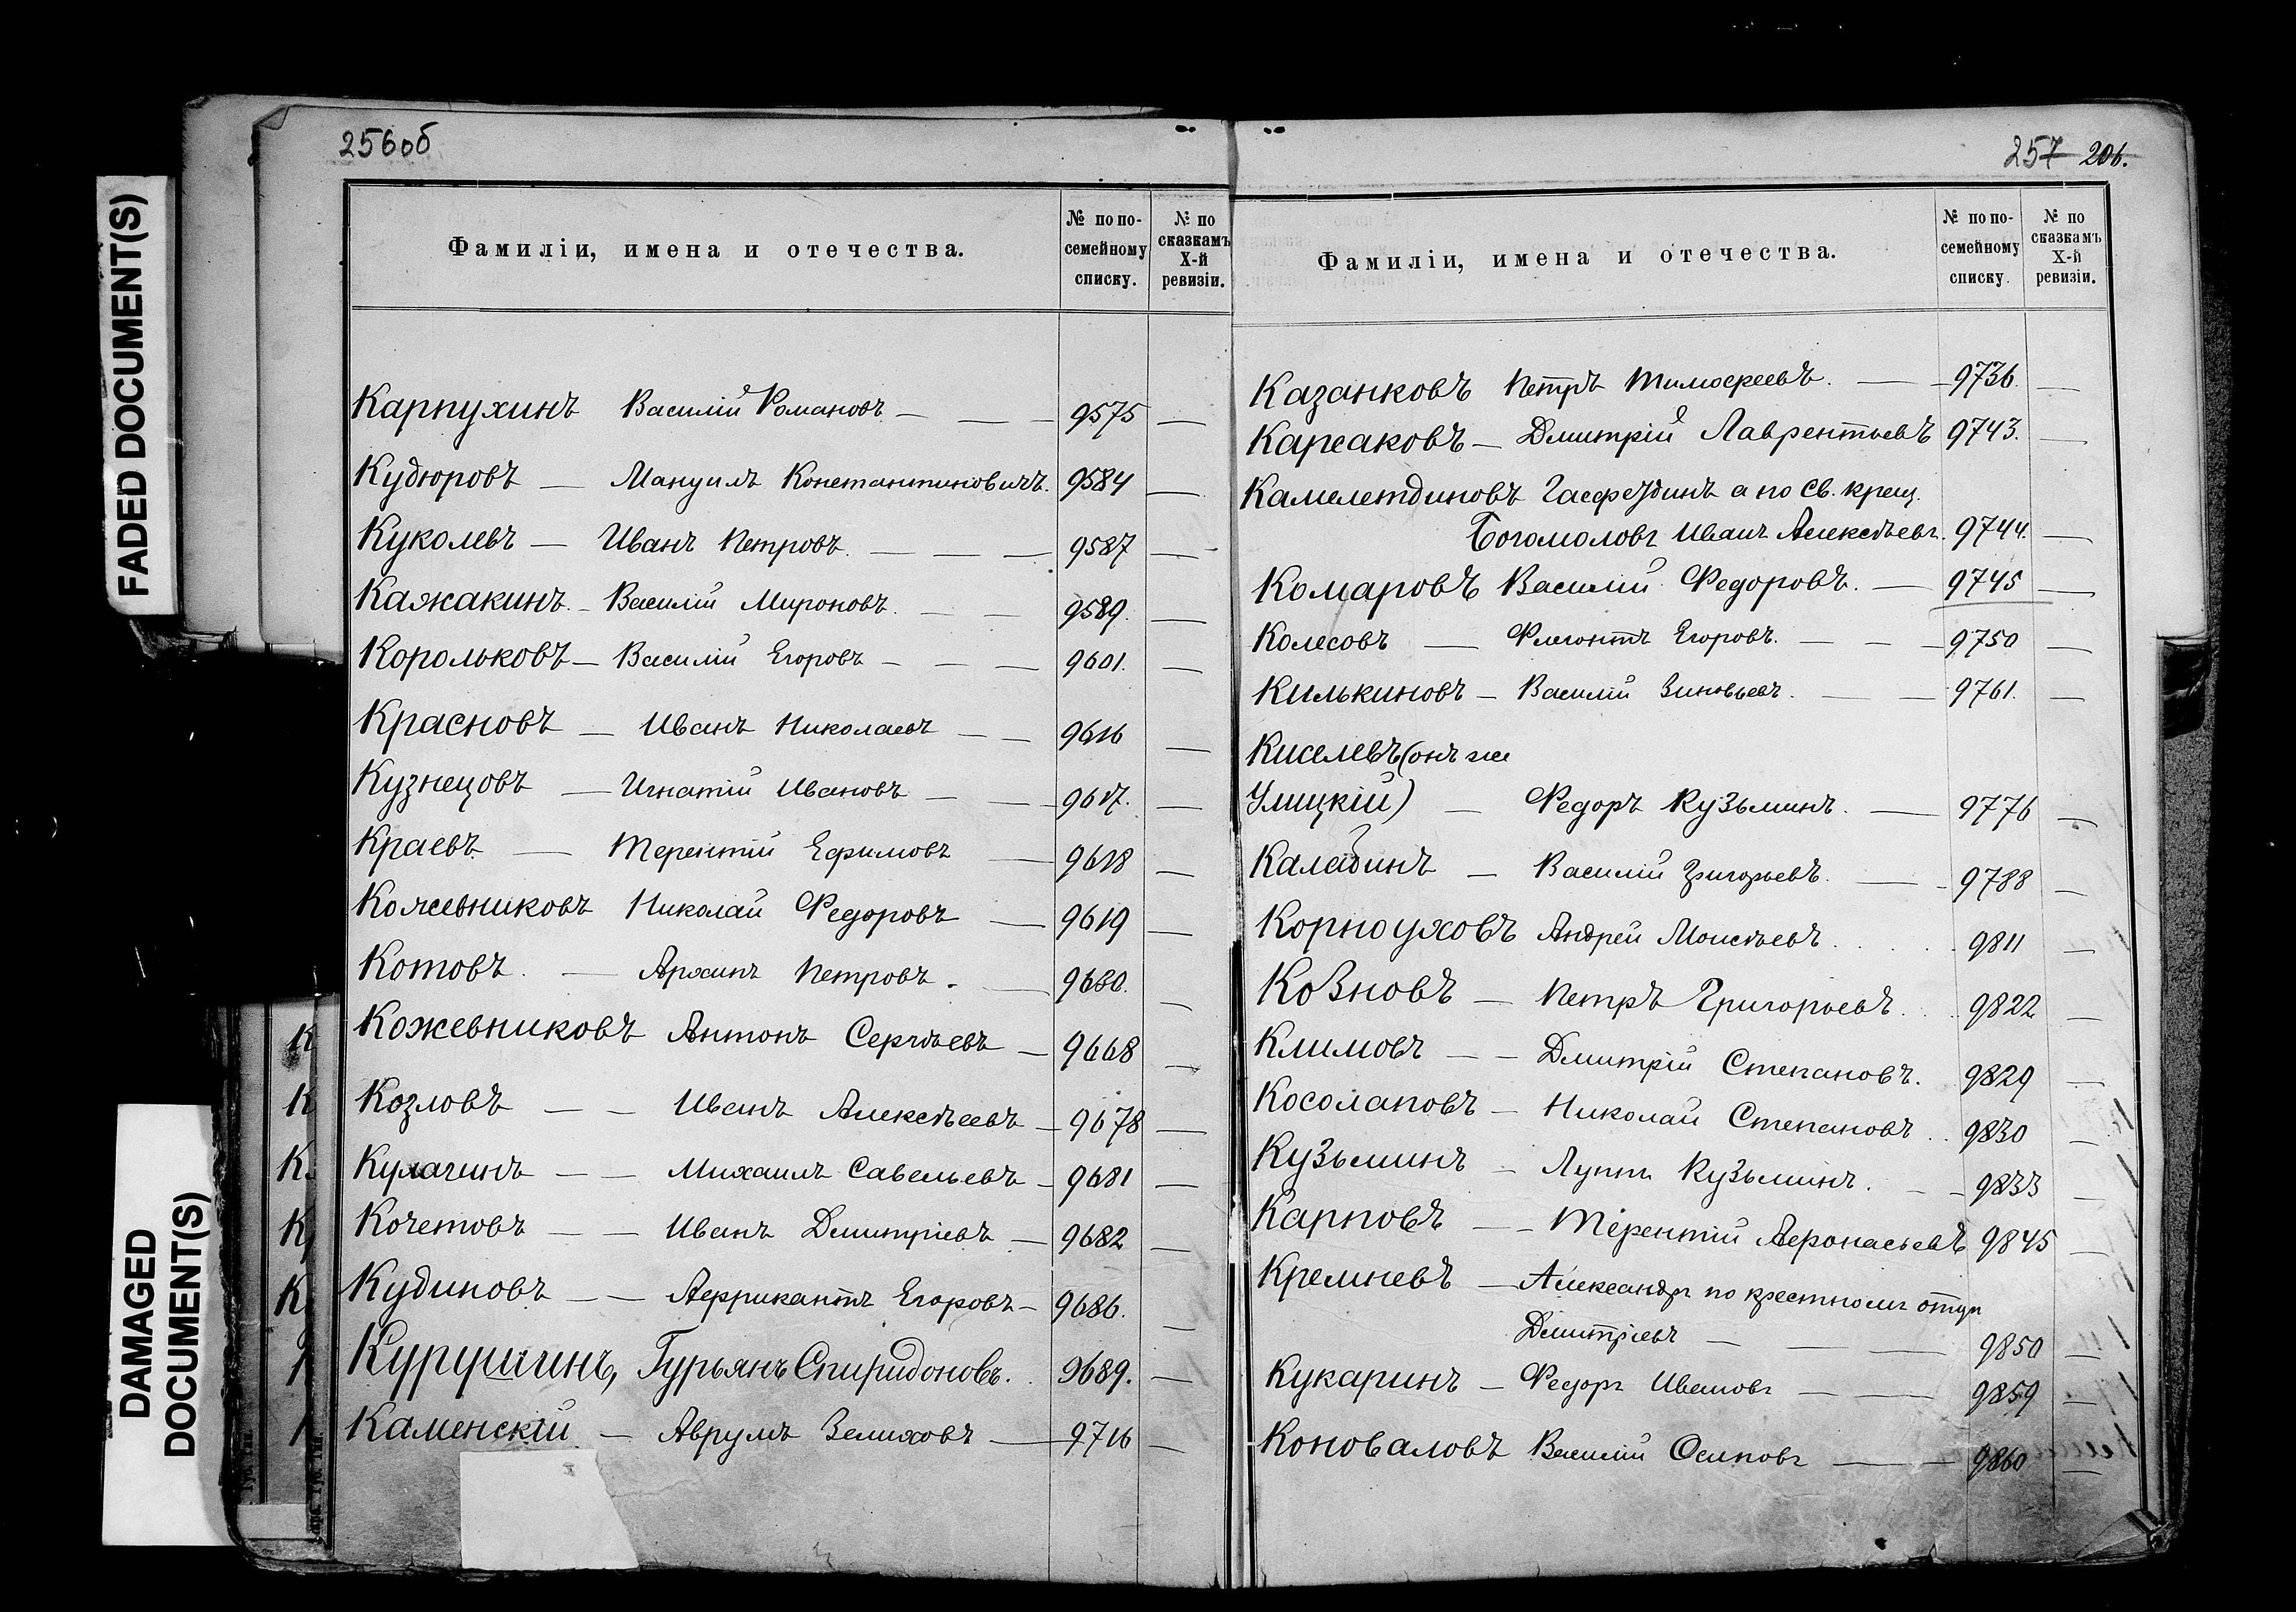 FADED DOCUMENT(S)
DAMAGED
DOCUMENT(S)
256об
Фамиліи, имена и отечества.
№ по по-
семейному
списку.
№ по
сказкамъ
X-й
ревизіи.
Карпухинъ Василій Романовъ — — — 9575 —
Кудюровъ — Мануилъ Константиновичъ. 9584 —
Куколевъ — Иванъ Петровъ. — — — 9587 —
Кажакинъ. — Василій Мироновъ. — — 9589. —
Корольковъ — Василій Егоровъ — — — 9601. —
Красновъ — Иванъ Николаевъ — — 9616 —
Кузнецовъ — Игнатій Ивановъ — — 9617. —
Краевъ — Терентій Ефимовъ — 9618 —
Кожевниковъ Николай Федоровъ — 9619 —
Котовъ. — Архипъ Петровъ. — —
Кожевниковъ Антонъ Сергѣевъ — 9668 —
Козловъ — — Иванъ Алексѣевъ — 9678 —
Кулагинъ — — Михаилъ Савельевъ — 9681 —
Кочетовъ — — Иванъ Дмитріевъ — 9682 —
Кудиновъ — — Аффрикантъ Егоровъ — 9686. —
Курушинъ, Гурьянъ Спиридоновъ. 9689. —
Каменскій — Аврумъ Зелиховъ — 9716 —
257 206.
Фамиліи, имена и отечества.
№ по по-
семейному
списку.
№ по
сказкамъ
X-й
ревизіи.
Казанковъ Петръ Тимофеевъ. — — 9736. —
Карсаковъ — Дмитрій Лаврентьевъ 9743. —
Камелетдиновъ а по св. крещ.
Богомоловъ Иванъ Алексѣевъ. 9744. —
Комаровъ Василій Федоровъ. — 9745 —
Колесовъ — Флегонтъ Егоровъ. — — — 9750 —
Килькиновъ — Василій Зиновьевъ. — — 9761. —
Киселевъ (онъ же
Улицкій) — Федоръ Кузьминъ. — 9776 —
Каладинъ — Василій Григорьевъ. — 9788 —
Корноуховъ Андрей Моисѣевъ. . . . . 9811 —
Козновъ — Петръ Григорьевъ. . . 9822 —
Климовъ — — Дмитрій Степановъ. 9829 —
Косолаповъ — Николай Степановъ . . 9830 —
Кузьминъ — Луппъ Кузьминъ. — — 9833 —
Карповъ — — Терентій Афонасьевъ 9845 —
Кремневъ — Александръ по крестному отцу
Дмитріевъ — — — 9850 —
Кукаринъ — Федоръ Ивановъ — — 9859 —
Коноваловъ Василій Осиповъ — — 9860 —